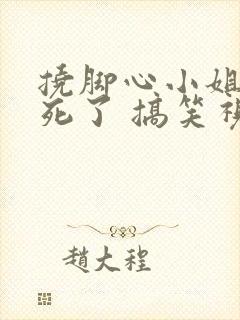 挠脚心小姐
死了 搞笑
趙大程